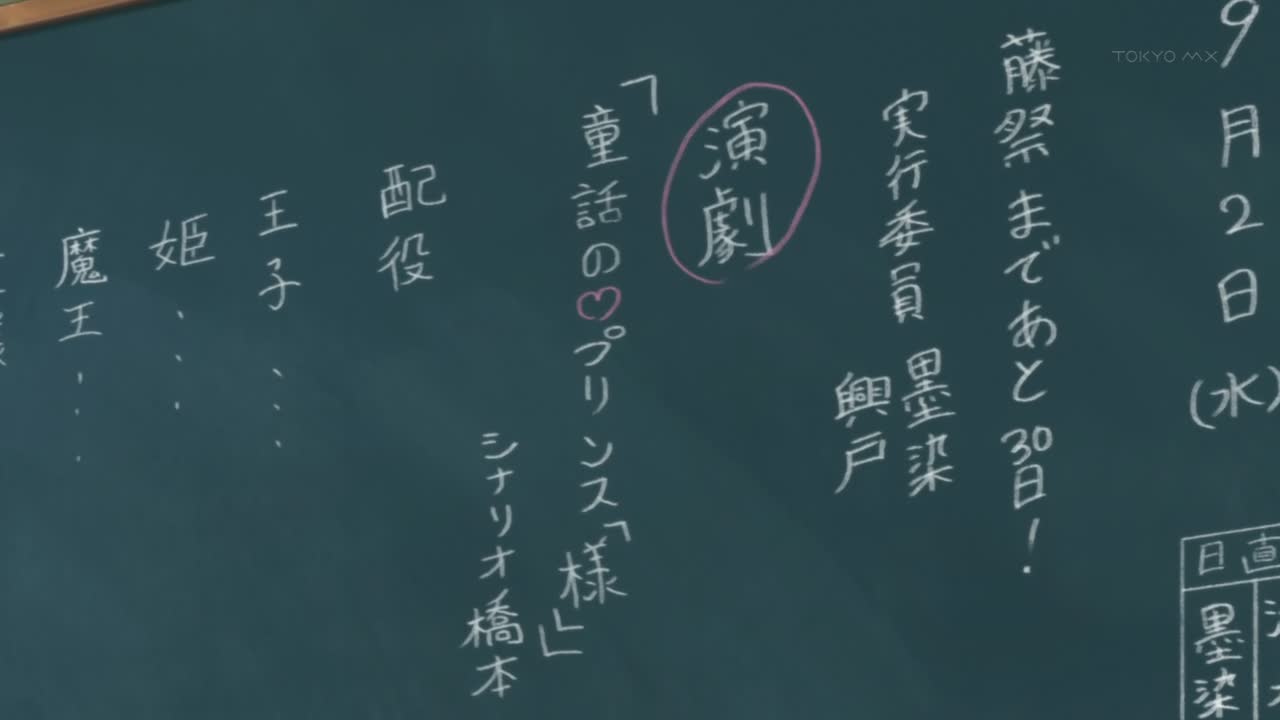 9月2日(水)
TOKYO MX
日直
墨染
藤祭まであと30日!
実行委員 墨染
興戸
演劇
「童話の♡プリンス「様」」
シナリオ橋本
配役
王子・・・
姫・・・
魔王・・・